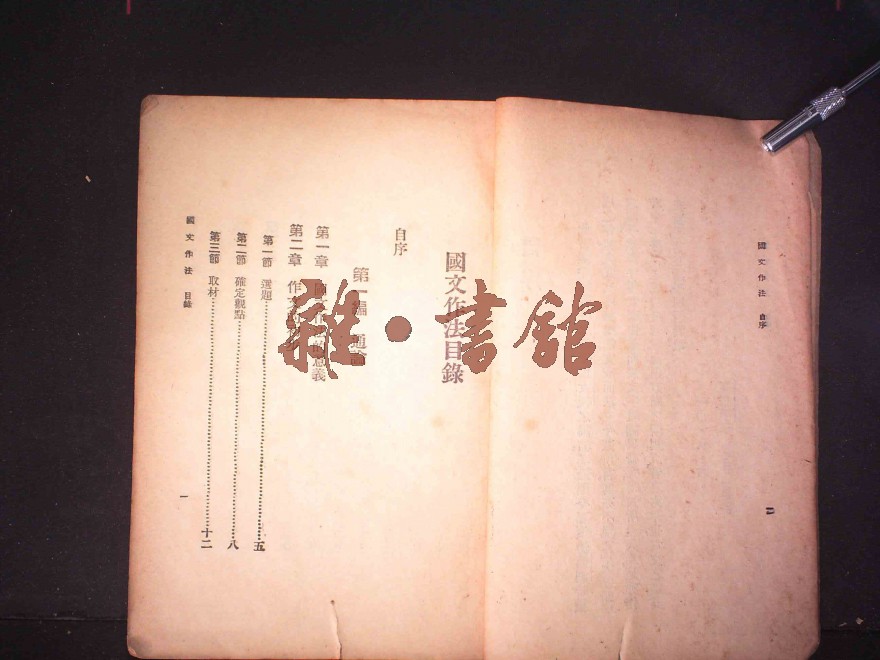 國文作法 自序
二
國文作法目錄
自序
第一編 通論
第一章 義
第二章 作文
第一節 選題 五
第二節 確定觀點 八
第三節 取材 十二
國文作法 目錄
一
雜·書館